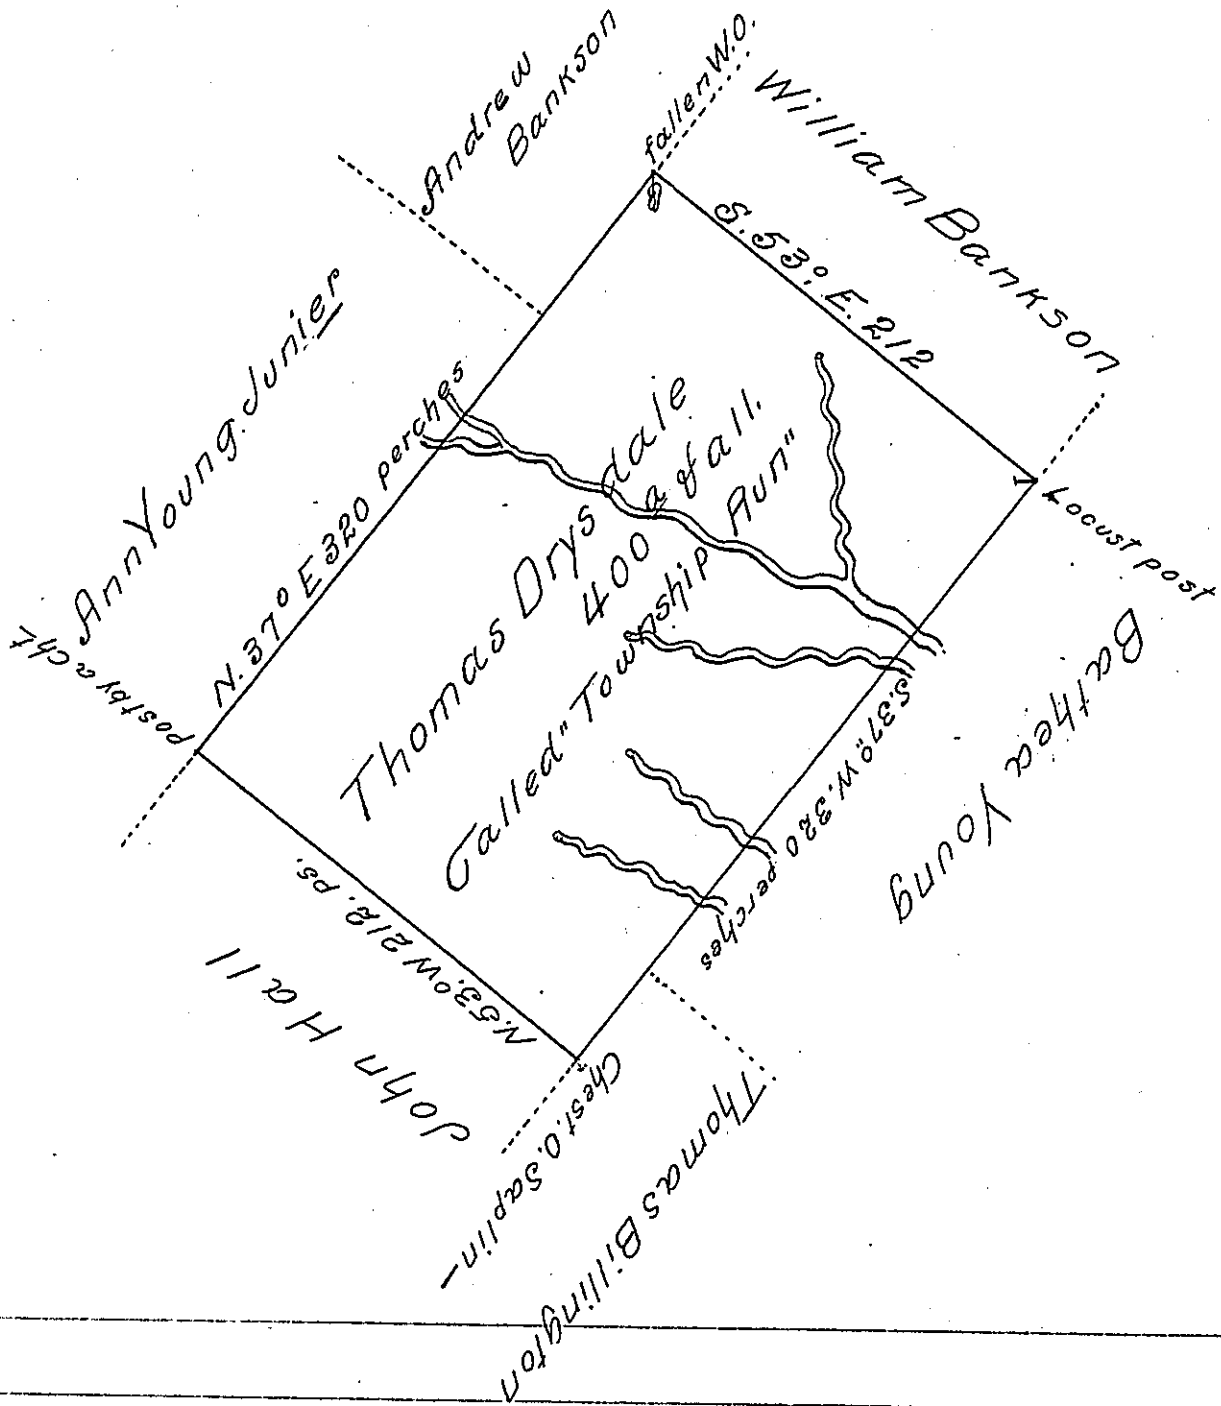 Andrew
Bankson
fallen W.O.
William Bankson
S. 53° E. 212
Ann Young. Junier
N. 37° E 320 perches
post by a cht
Thomas Drysdale
400 a & all.
Called "Township Run"
Locust post
Bathea Young
S. 37° W. 320 perches
N. 53° W 212. ps.
John Hall
Chest. O. Saplin
Thomas Billington